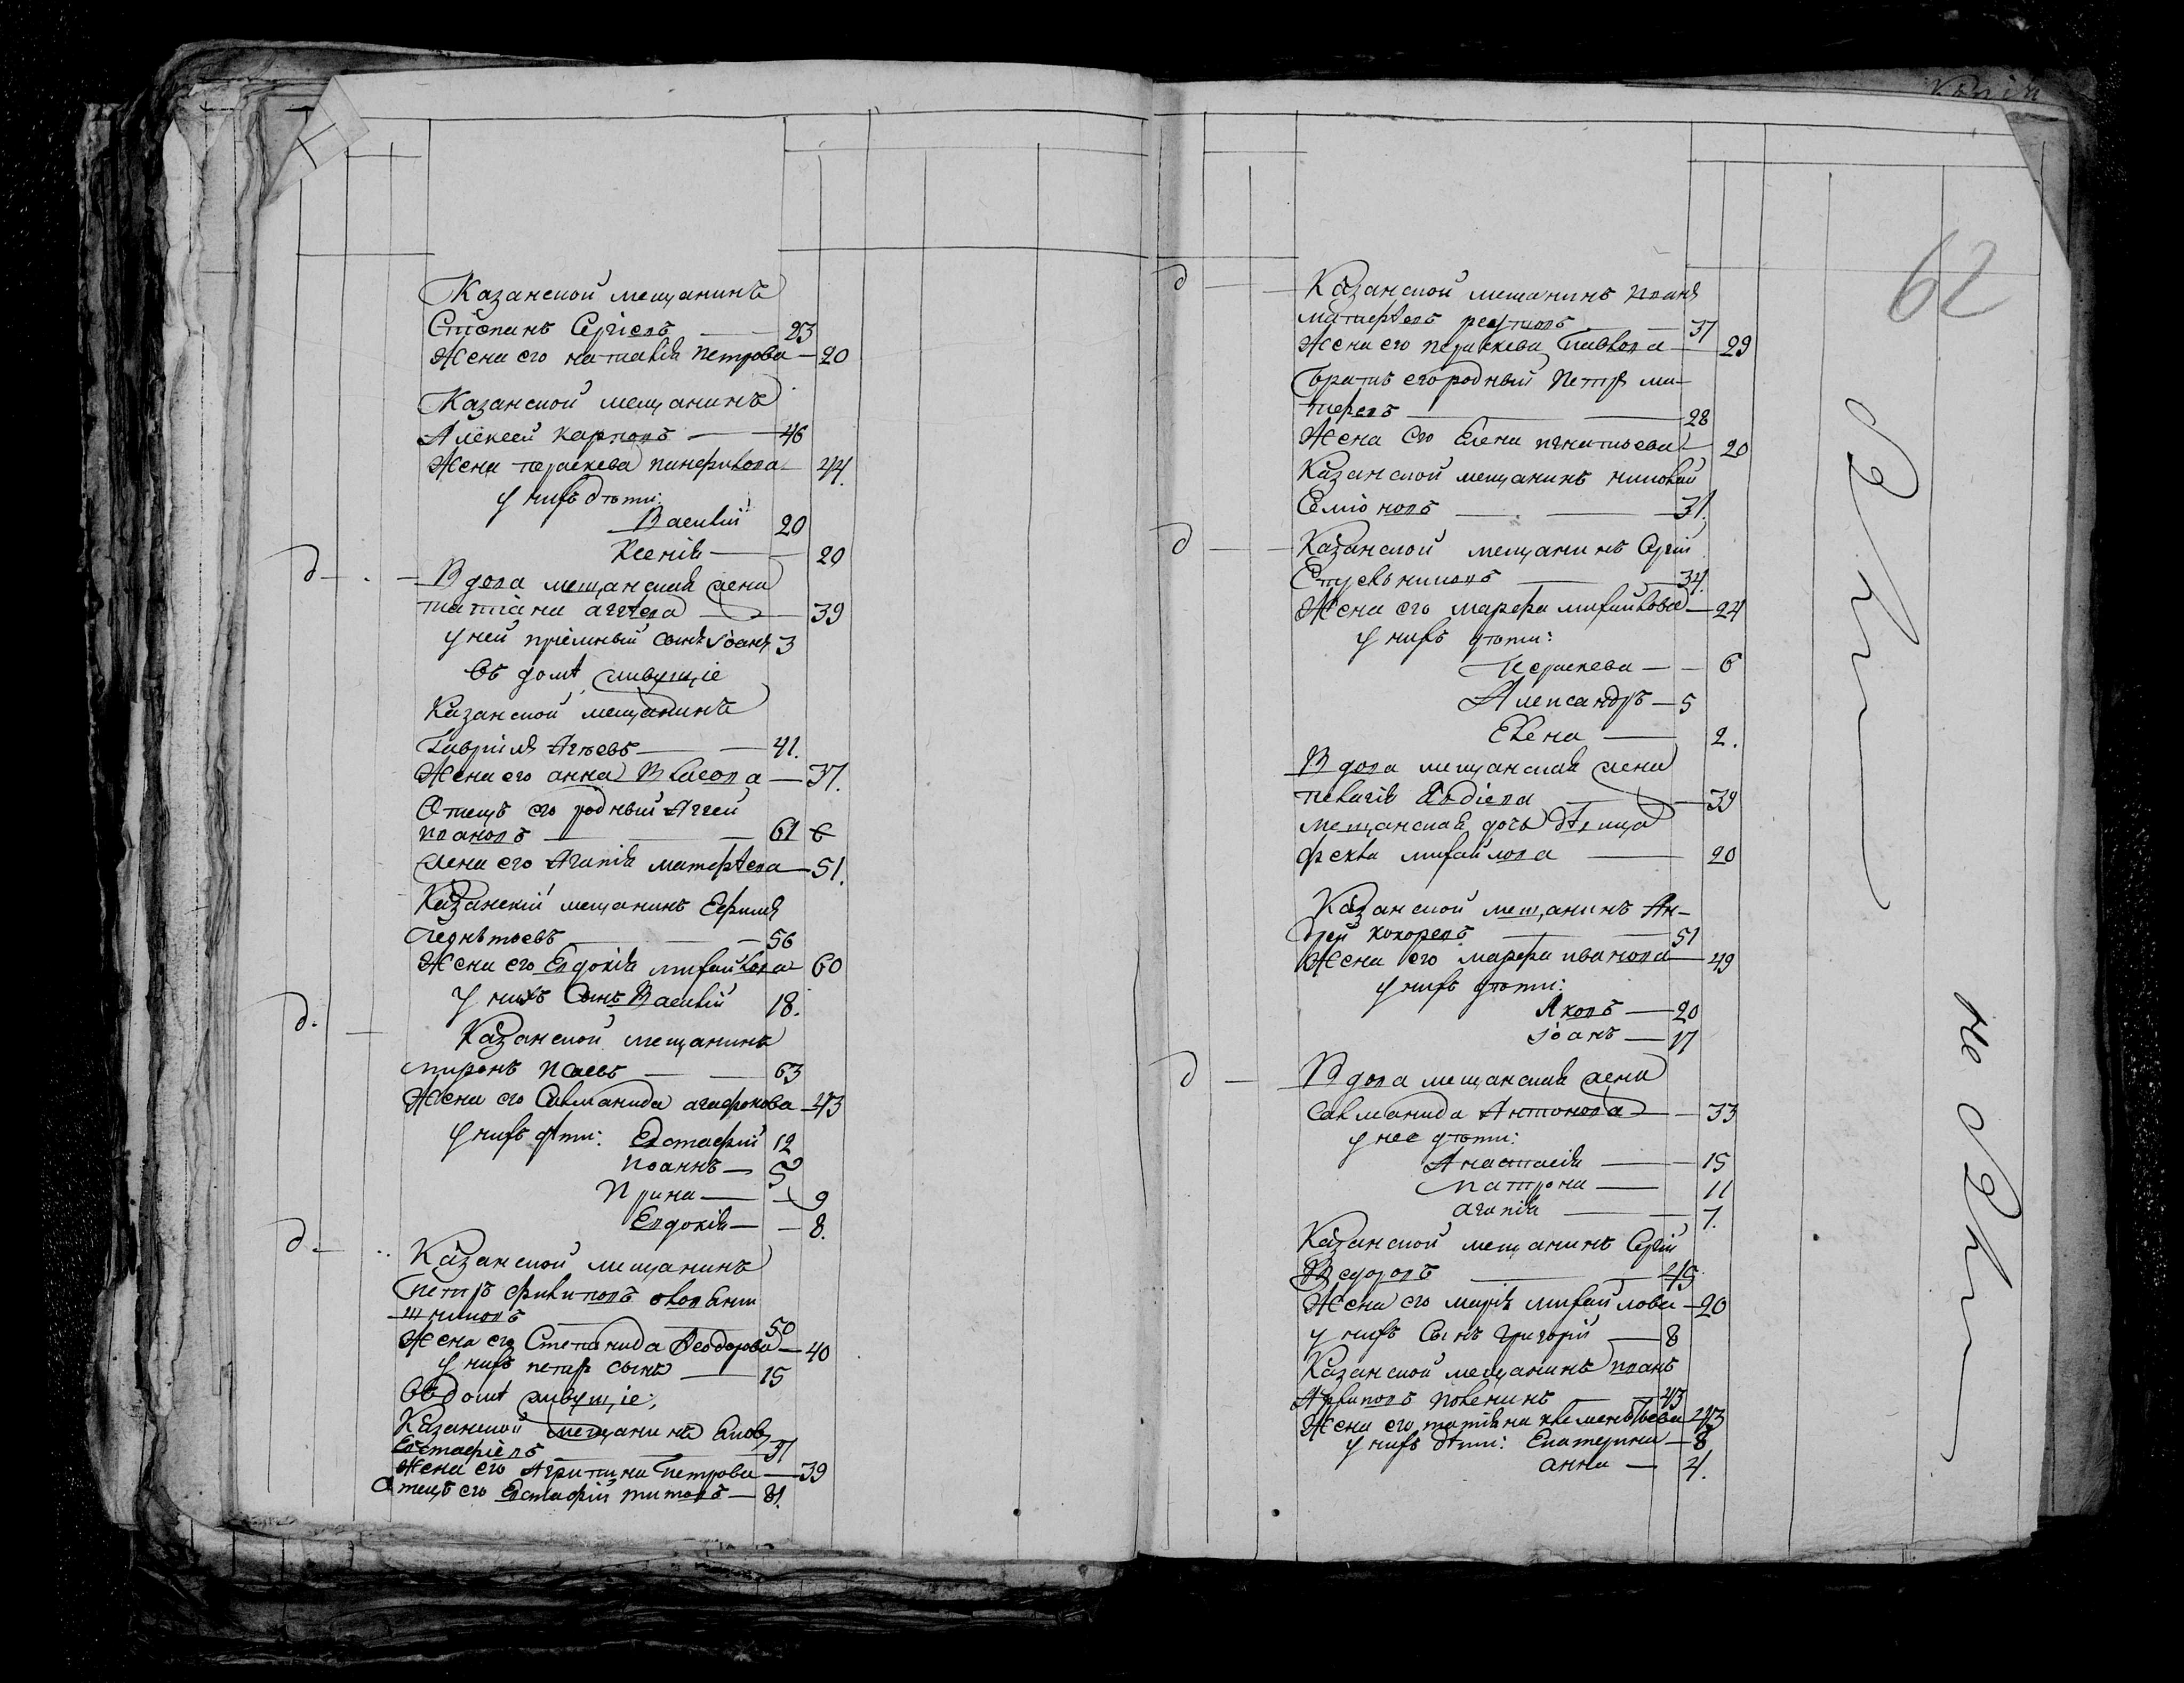 Казанской мещанинъ
Степанъ Сергіевъ — 23
Жена его наталія петрова — 20
Казанской мещанинъ
Алексей карповъ — 46
Жена параскева панфилова — 44.
у нихъ дѣти:
Василій 20
Ксенія — 20
д — Вдова мещанская жена
татіана аггѣева — 39
у ней пріемный сынъ іоаннъ 3
въ домѣ живущіе
Казанской мещанинъ
Гавріилъ Агѣевъ — 41.
Жена его анна Власова — 37.
Отецъ его родный Аггей
ивановъ — 61
Жена его Агапія матфѣева — 51.
Казанскій мещанинъ Ефимъ
— 56
Жена его Евдокія михайлова 60
У нихъ Сынъ Василій 18.
д. — Казанской мещанинъ
миронъ исаевъ — 63
Жена его Саламанида агафонова — 43
у нихъ дѣти: Евстафій 12
иоаннъ — 5
Ирина — 9
Евдокія — 8.
д — Казанской мещанинъ
петръ филиповъ
50
Жена его Степанида Феодорова — 40
у нихъ сынъ — 15
Въ домѣ живущіе:
Казанской мещанинъ
Евстафіевъ — 37
Жена его Агрипина петрова — 39
Отецъ его Евстафій титовъ — 81.
62
д — Казанской мещанинъ иоаннъ
матфѣевъ — 37
Жена его параскева Павлова — 29
братъ его родный петръ ма-
тфеевъ — 28
Жена его Елена игнатьева — 20
Казанской мещанинъ николай
Семіоновъ — 31.
д — Казанской мещанинъ Сергій
— 34.
Жена его марфа михайлова — 24
у нихъ дѣти:
параскева — 6
Александръ — 5
Елена — 2.
Вдова мещанская жена
пелагія Авдіева — 39
мещанская дочь дѣвица
фекла михайлова — 20
Казанской мещанинъ Ан-
дрей кокоревъ — 51
Жена его марфа иванова — 49
у нихъ дѣти:
Яковъ — 20
іоанъ — 17
д — Вдова мещанская жена
Саламанида Антонова — 33
у нее дѣти:
Анастасія — 15
матрона — 11
агапія — 7.
Казанской мещанинъ Сергій
Федоровъ — 45
Жена его марія михайлова — 20
у нихъ Сынъ григорій — 8
Казанской мещанинъ иоанъ
43
Жена его татіана клементьева 43
у нихъ дѣти: Екатерина — 8
анна — 4.